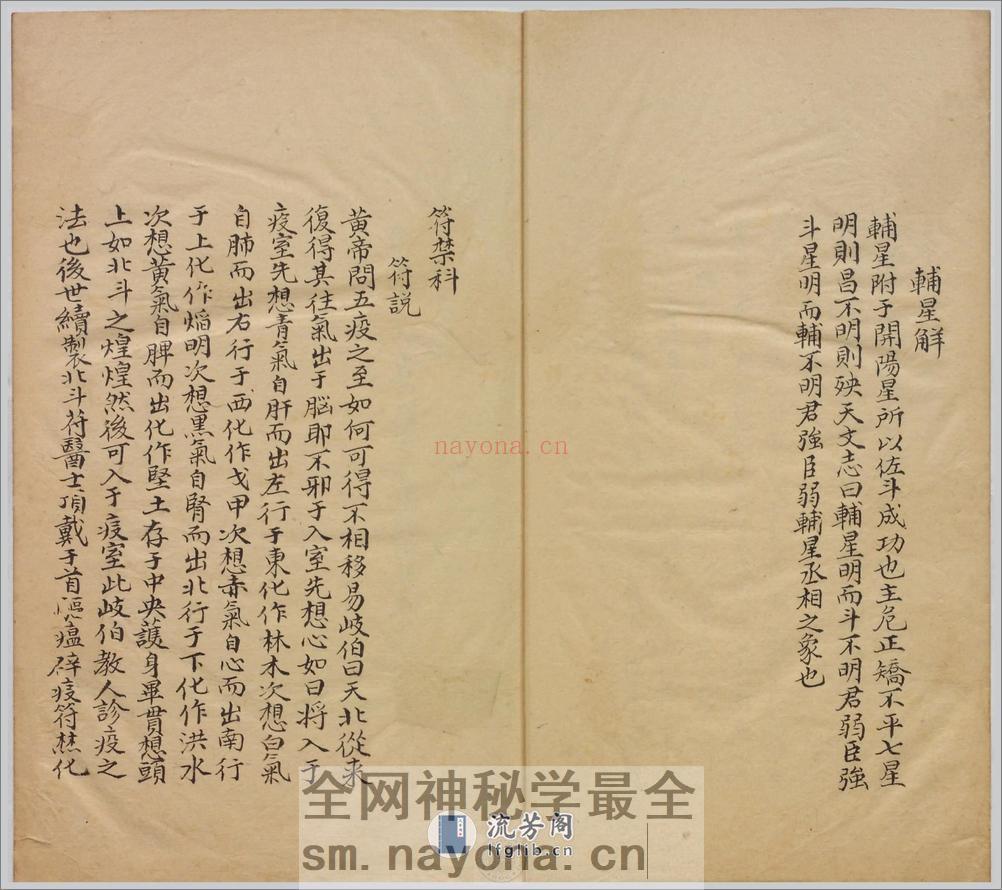 輔星解
輔星附于開陽星所以佐斗成功也主危正矯不平七星
明則昌不明則殃天文志曰輔星明而斗不明君弱臣強
斗星明而輔不明君強臣弱輔星丞相之象也
符禁科
符説
黄帝問五疫之至如何可得不相移易岐伯曰天北從来
復得其往氣出于脳耶不邪于入室先想心如日将入于
疫室先想青氣自肝而出左行于東化作林木次想白氣
自肺而出右行于西化作戈甲次想赤氣自心而出南行
于上化作焰明次想黒氣自腎而出北行于下化作洪水
次想黄氣自脾而出化作堅土存于中央護身畢貫想頭
上如北斗之煌煌然後可入于疫室此岐伯教人診疫之
法也後世續製北斗符醫士頂戴于首驅瘟辟疫符禁化
nayona.cn
全网神秘学最全
流芳阁
lfglib.cn
sm.nayona.cn